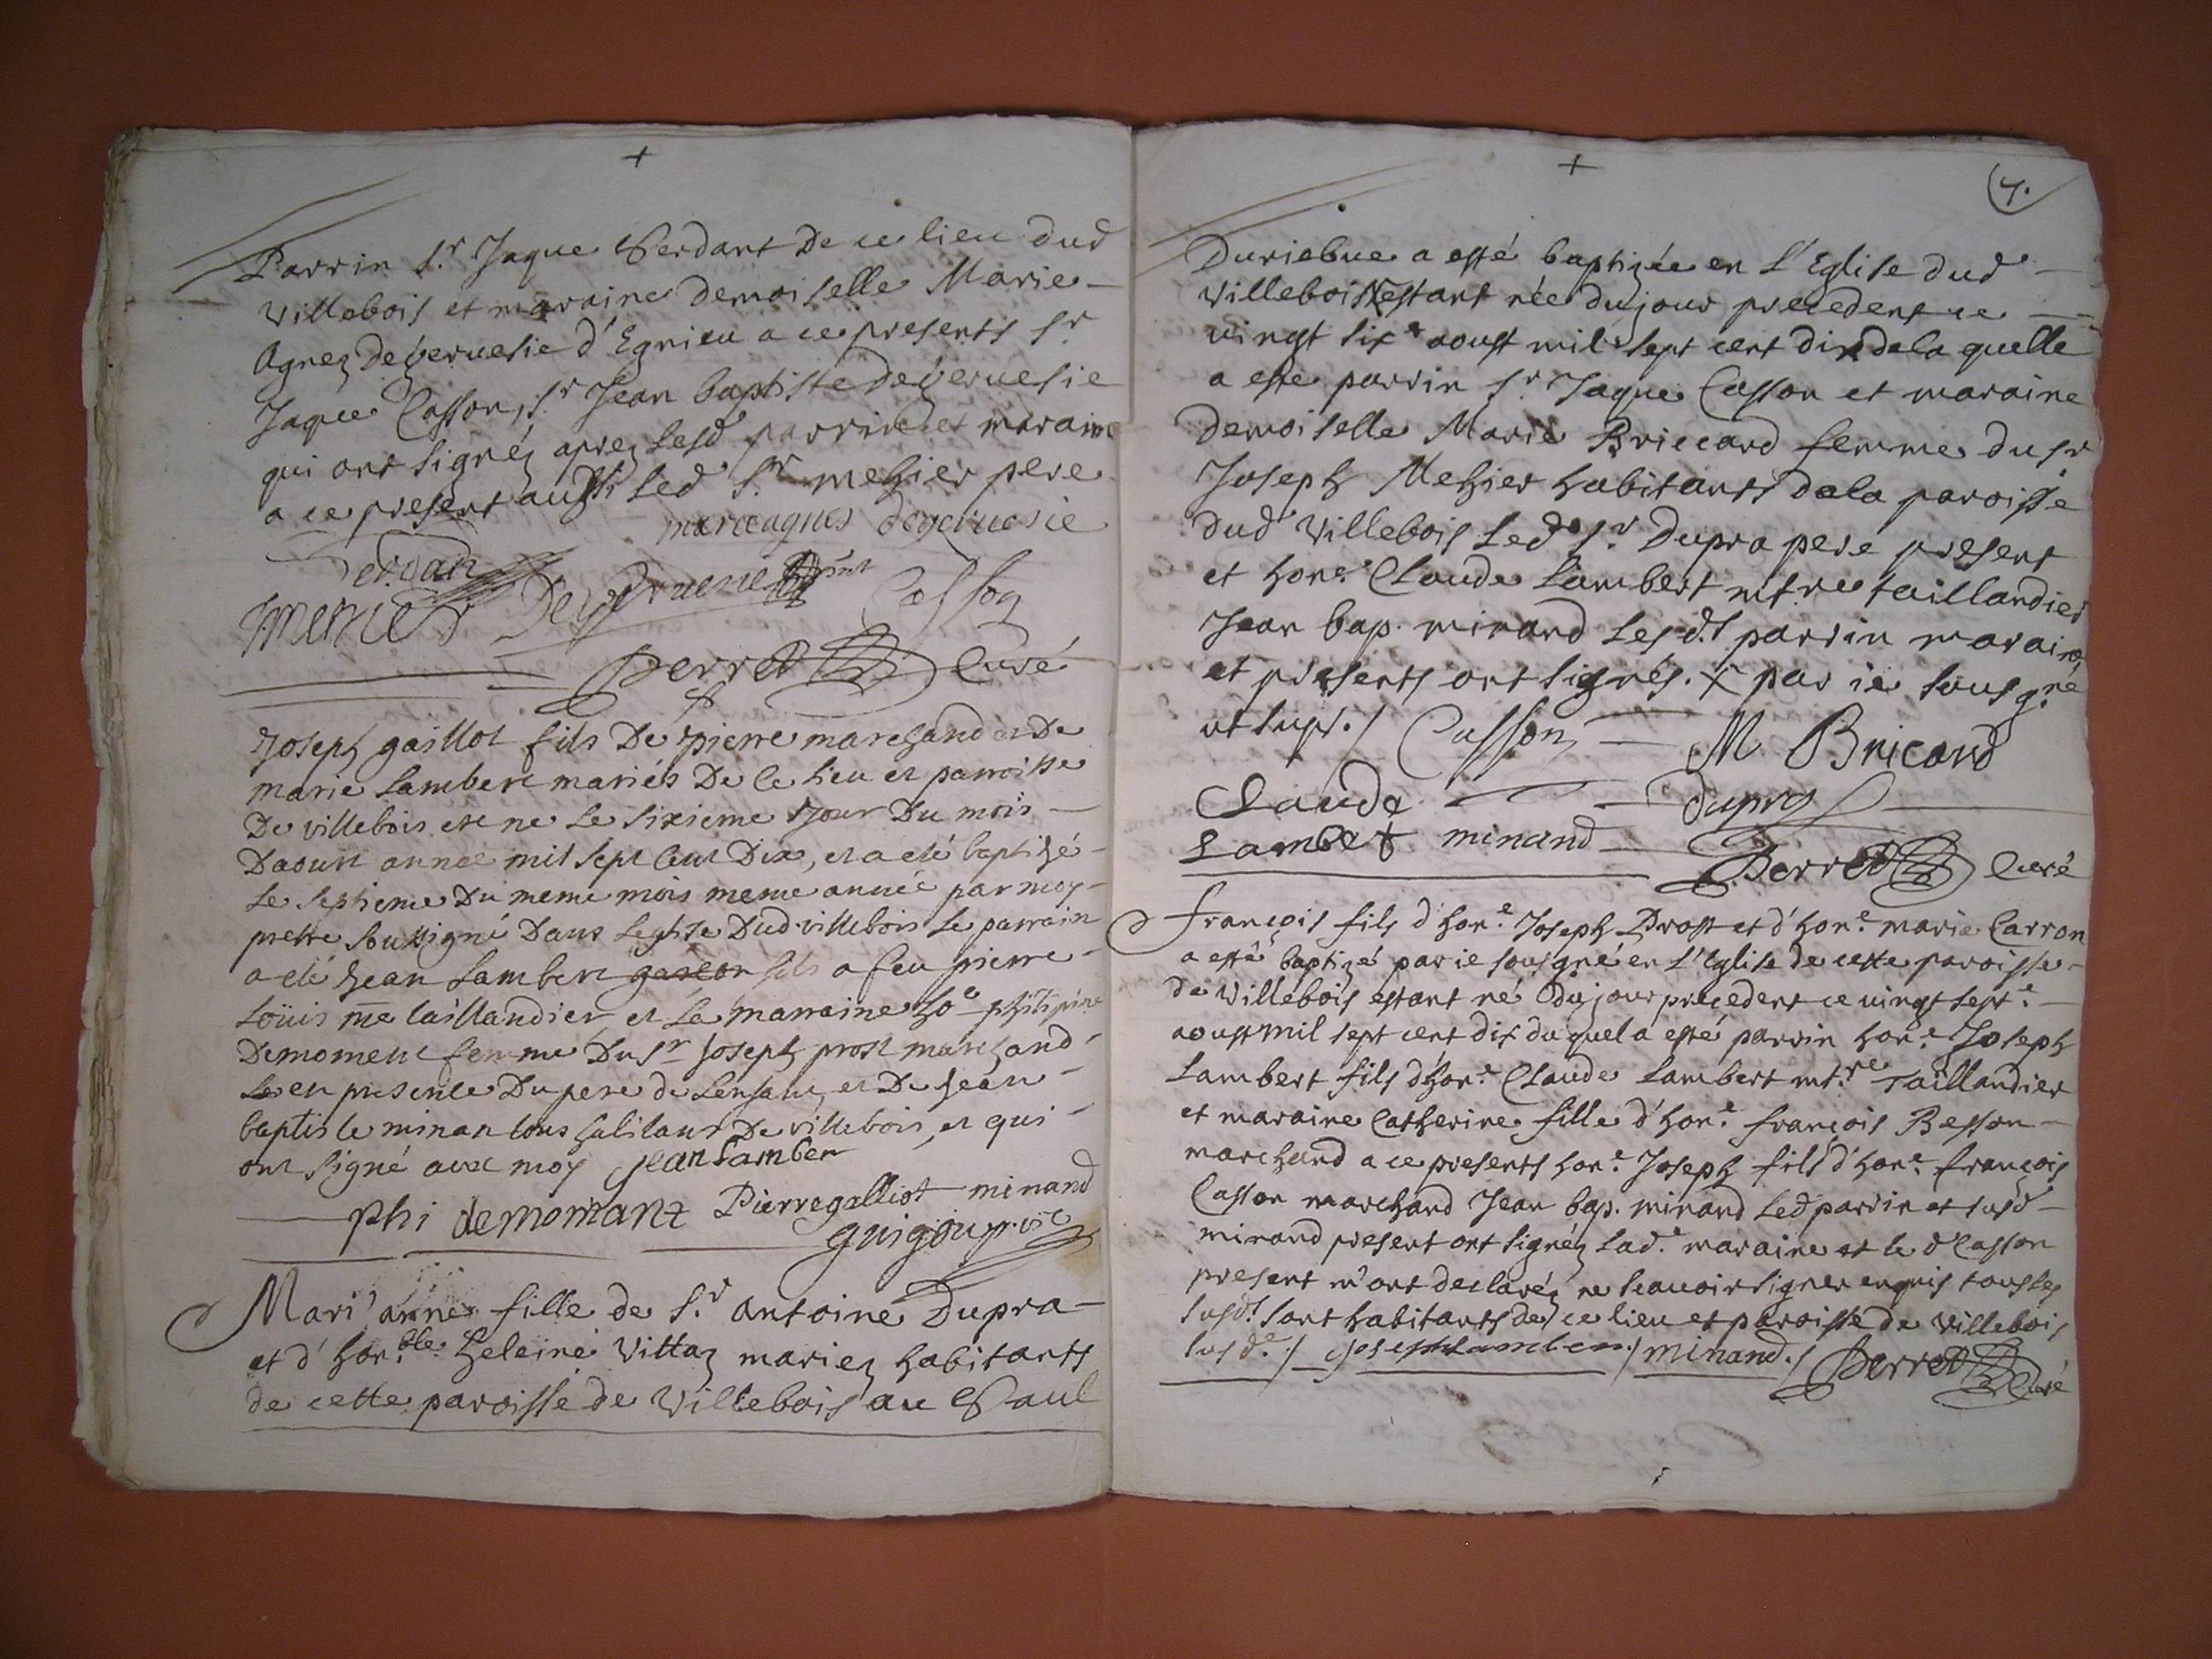 +
Parrin s.r Jaque Verdant De ce lieu dud
Villebois et maraine demoiselle Marie
Agnez Degeruesie d'Egnieu a ce presents sr
Jaque Casson, s.r Jean baptiste Degeruesie
qui ont signéz aprez lesd parrin et maraine
a ce present aussi led s.r mehier pere
marieagnes degeruesie
Verdan
Jmehier Degeruesie pnt Casson
Perret Curé
Joseph gaillot fils De pierre marchand et De
marie Lambert mariés De ce lieu et parroisse
De villebois est ne Le sixieme Jour Du mois
Daoust année mil sept cent Dix, et a eté baptizé
Le septieme Du meme mois meme année par moy
pretre soussigné Dans Leglise Dud villebois Le parrain
a eté Jean Lambert fils a feu pierre
Loüis me taillandier et La marraine ho.e
Demoment femme Du sr Joseph prost marchand
en presence Du pere de Lenfant, et De Jean
baptiste minan tous habitans De villebois, et qui
ont signé avec moy Jean Lamber
phi demomant Pierre galliot minand
guigou
Mari'anne fille de s.r antoine Dupra
et d'hon.ble heleine Vittaz mariez habitants
de cette paroisse de Villebois au Saul
+
7.
Duriebue a esté baptizée en L'Eglise dud
Villebois X estant née du jour precedent ce
vingt six.e aoust mil sept cent dix de la quelle
a esté parrin s.r Jaque Casson et maraine
demoiselle Marie Briccard femme du sr
Joseph Mehier habitants de la paroisse
dud Villebois Led.s.r Dupra pere present
et hon.e Claude Lambert mtre taillandier
Jean bap. minand Lesd.s parrin maraine,
et presents ont signés. X par ie sousg.né
ut sup. / Casson M Bricard
Claude dupra
Lambert minand Perret Curé
françois fils d'hon.e Joseph Prost et d'hon.e marie Carron
a esté baptizé par ie sousigné en L'Eglise de cette paroisse
de Villebois estant né du jour precedent ce vingt sept.e
aoust mil sept cent dix duquel a esté parrin hon.e Joseph
Lambert fils d'hon.e Claude Lambert mt.re Taillandier
et maraine Catherine fille d'hon.e françois Besson
marchand a ce presents hon.e Joseph fils d'hon.e françois
Casson marchand Jean bap. minand Led parrin et susd
minand present ont signéz Lad.e maraine et le d Casson
present m'ont declaréz ne scauoir signer enquis tous les
susd.s sont habitants de ce lieu et paroisse de Villebois
susd.e / Joseph Lamber / minand / Perret Curé